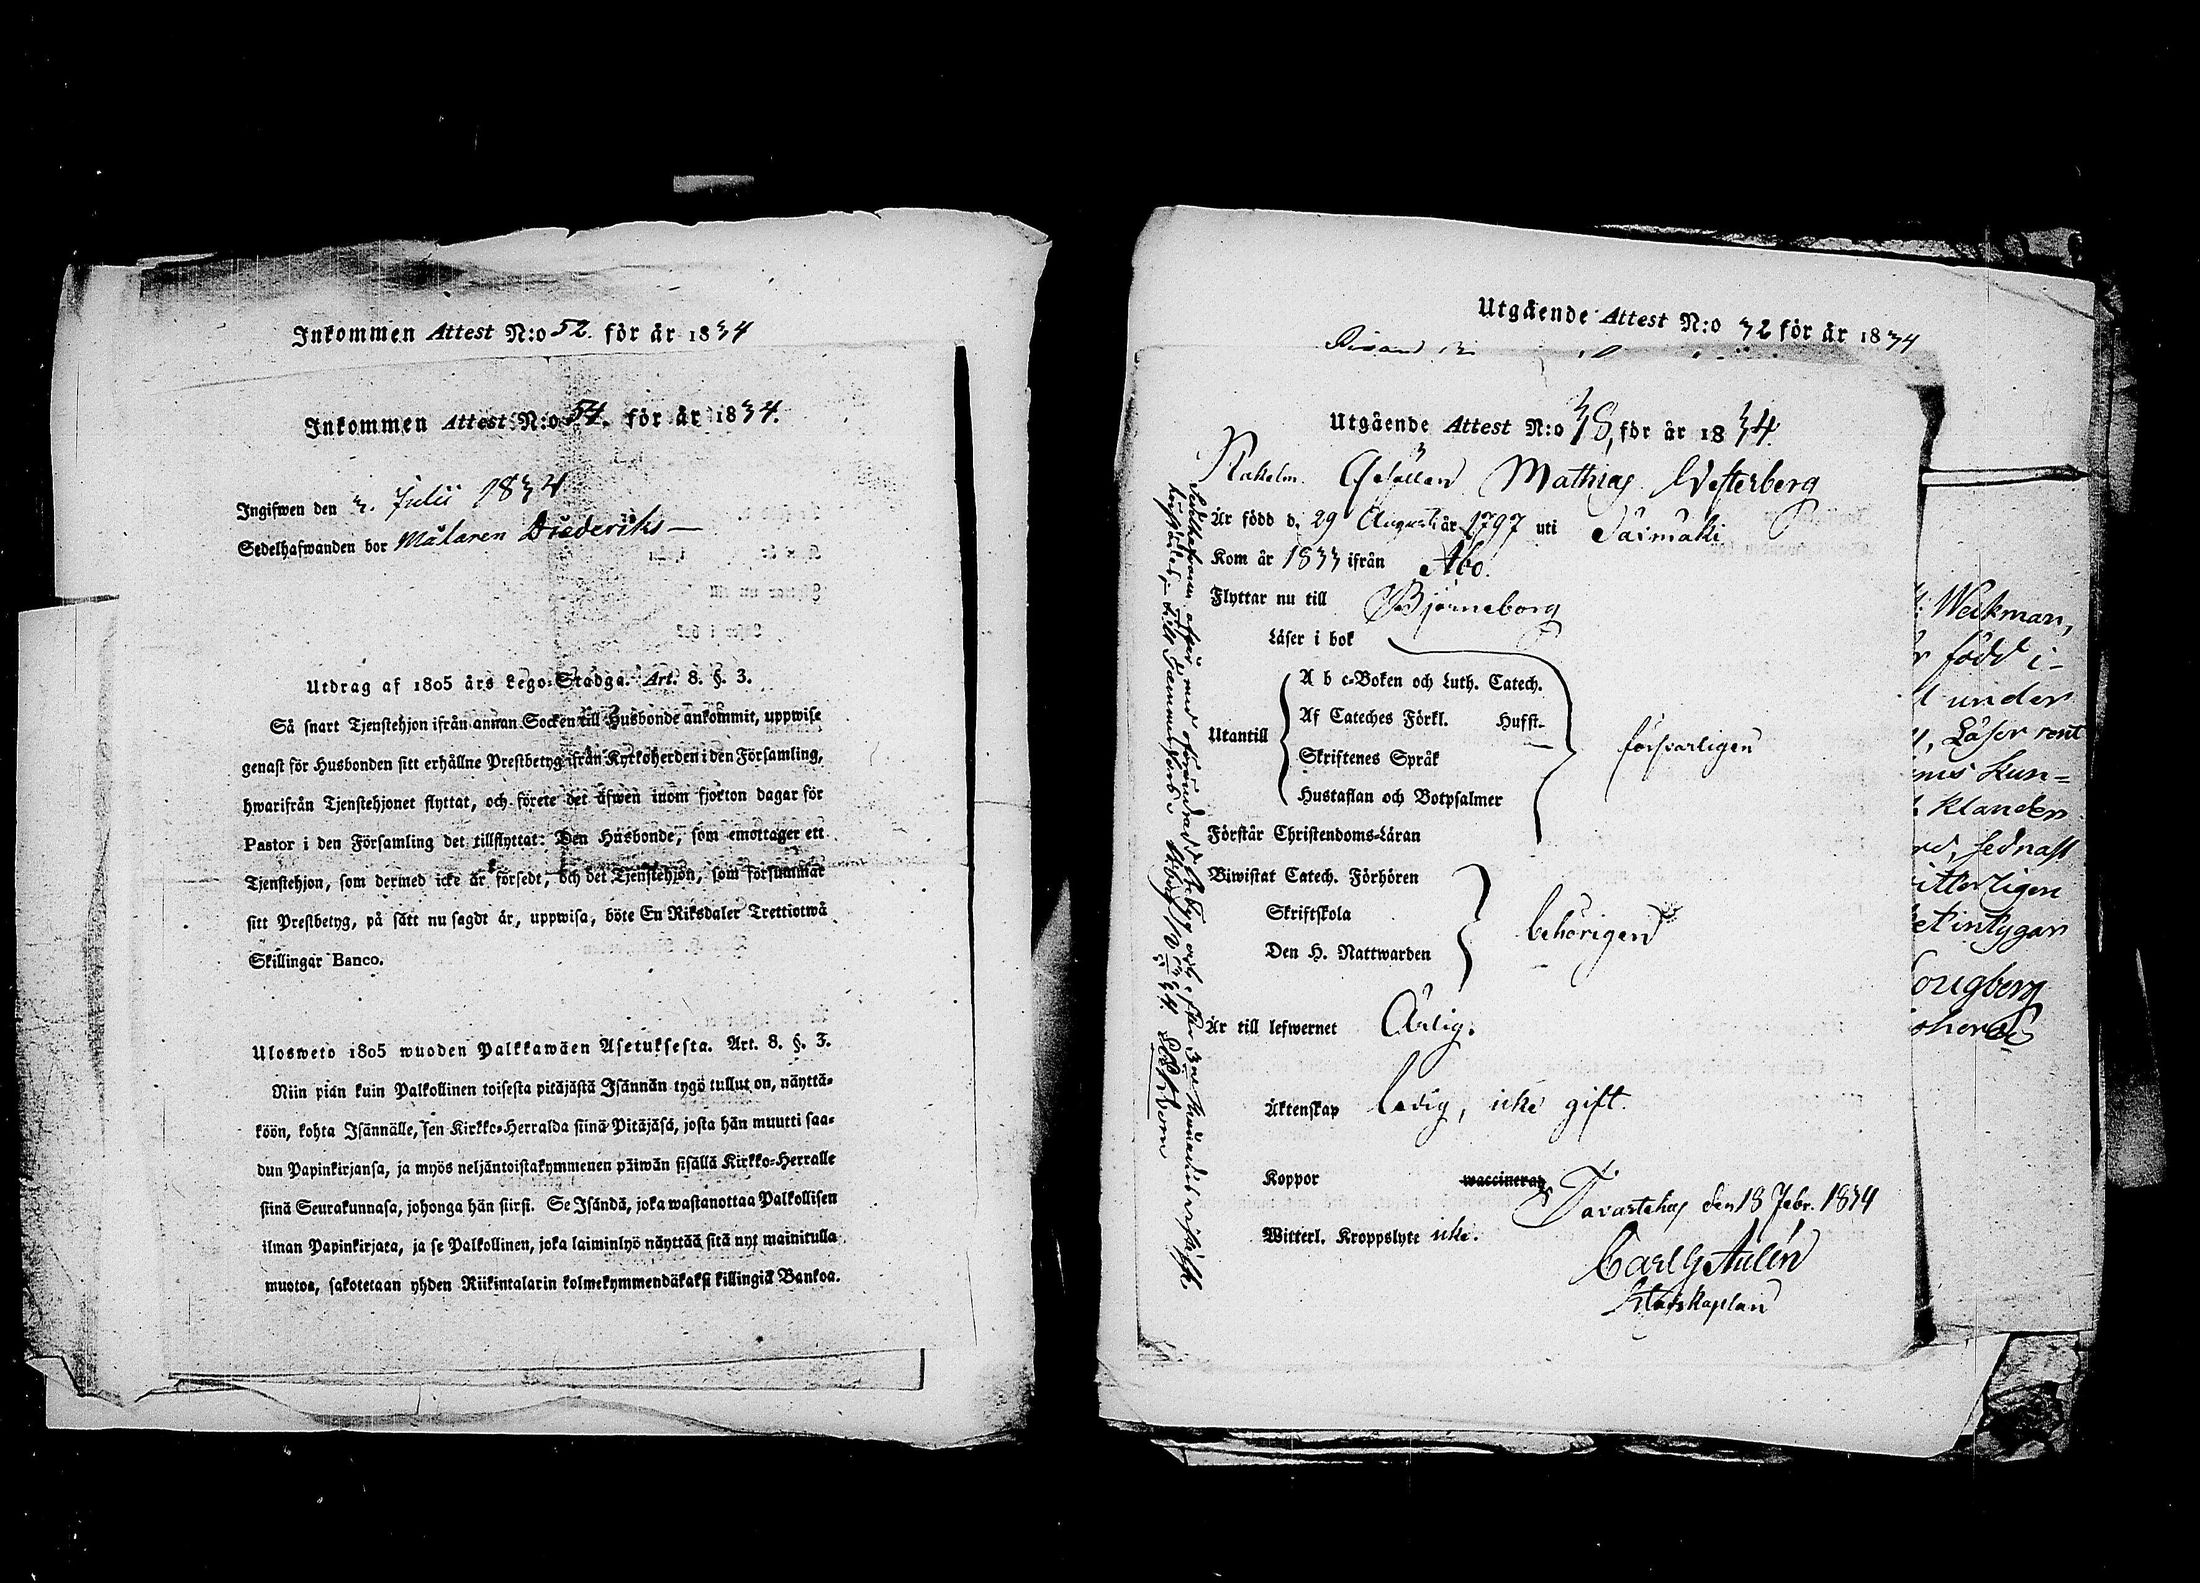 Inkommen Attest N:o 52. för år 1834
Inkommen Attest N:o 54. för år 1834.
Ingifwen den 3. Julii 1834
Sedelhafwanden bor Målaren Diederiks —
Utdrag af 1805 års Lego-Stadga. Art. 8. §. 3.
Så snart Tjenstehjon ifrån annan Socken till Husbonde ankommit, uppwise
genast för Husbonden sitt erhållne Prestbetyg ifrån Kyrkoherden i den Församling,
hwarifrån Tjenstehjonet flyttat, och förete det äfwen inom fjorton dagar för
Pastor i den Församling det tillflyttat: Den Husbonde, som emottager ett
Tjenstehjon, som dermed icke är försedt, och det Tjenstehjon, som försummar
sitt Prestbetyg, på sätt nu sagdt är, uppwisa, böte En Riksdaler Trettiotwå
Skillingar Banco.
Ulosweto 1805 wuoden Palkkawäen Asetuksesta. Art. 8. §. 3.
Niin pian kuin Palkollinen toisesta pitäjästä Isännän tygö tullut on, näyttä-
köön, kohta Isännälle, sen Kirkko-Herralda siinä Pitäjäsä, josta hän muutti saa-
dun Papinkirjansa, ja myös neljäntoistakymmenen päiwän sisällä Kirkko-Herralle
siinä Seurakunnasa, johonga hän siirsi. Se Isändä, joka wastanottaa Palkollisen
ilman Papinkirjata, ja se Palkollinen, joka laiminlyö näyttää sitä nyt mainitulla
muotoa, sakotetaan yhden Riikintalarin kolmekymmendäkaksi killingiä Bankoa.
Utgående Attest N:o 32 för år 1834
Utgående Attest N:o 38, för år 1834.
Gesällen Mathias Westerberg
Är född d. 29 Augusti år 1797 uti Säxmäki
Kom år 1833 ifrån Åbo.
Flyttar nu till Björneborg
Läser i bok
A b c-Boken och Luth. Catech.
Af Cateches Förkl. Hufst.
Utantill
Skriftenes Språk
försvarligen
Hustaflan och Botpsalmer
Förstår Christendoms-Läran
Biwistat Catech. Förhören
Skriftskola
behörigen
Den H. Nattwarden
Är till lefwernet Ärlig.
Äktenskap ledig, icke gift.
Koppor waccinerad
Tavastehus den 18 Febr. 1834
Witterl. Kroppslyte icke.
Carl G Aulén
Stadskaplan
Weckman,
född i
under
Läser rent
kun=
klander
sednast
itterligen
intygar
ougberg